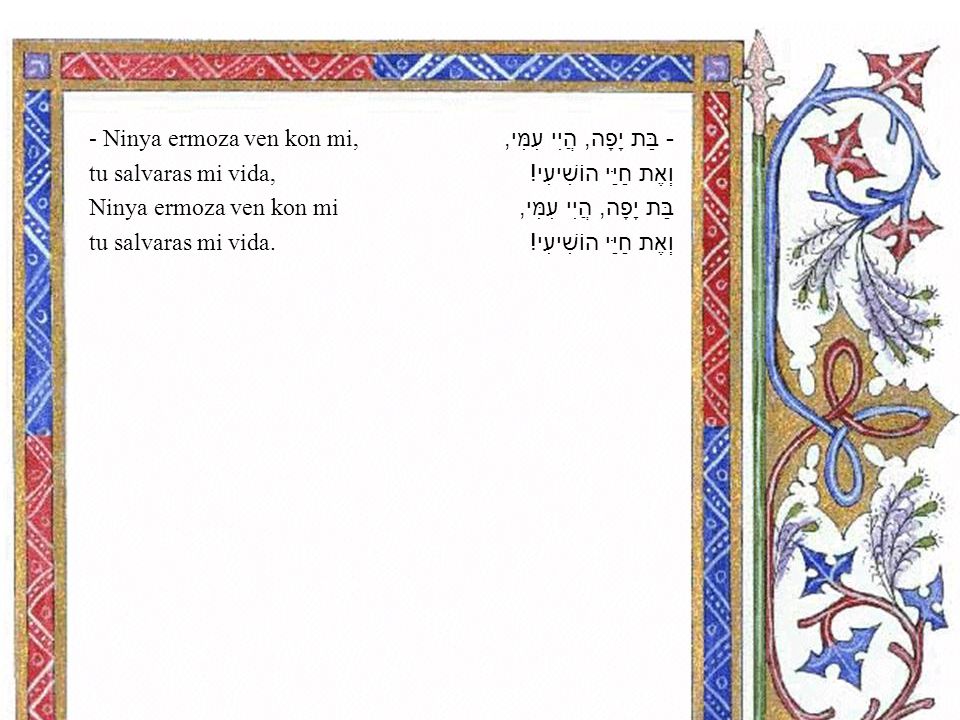 - Ninya ermoza ven kon mi,
tu salvaras mi vida,
Ninya ermoza ven kon mi
tu salvaras mi vida.
- בַּת יָפָה, הֲיִי עִמִּי,
וְאֶת חַיַּי הוֹשִׁיעִי!
בַּת יָפָה, הֲיִי עִמִּי,
וְאֶת חַיַּי הוֹשִׁיעִי!